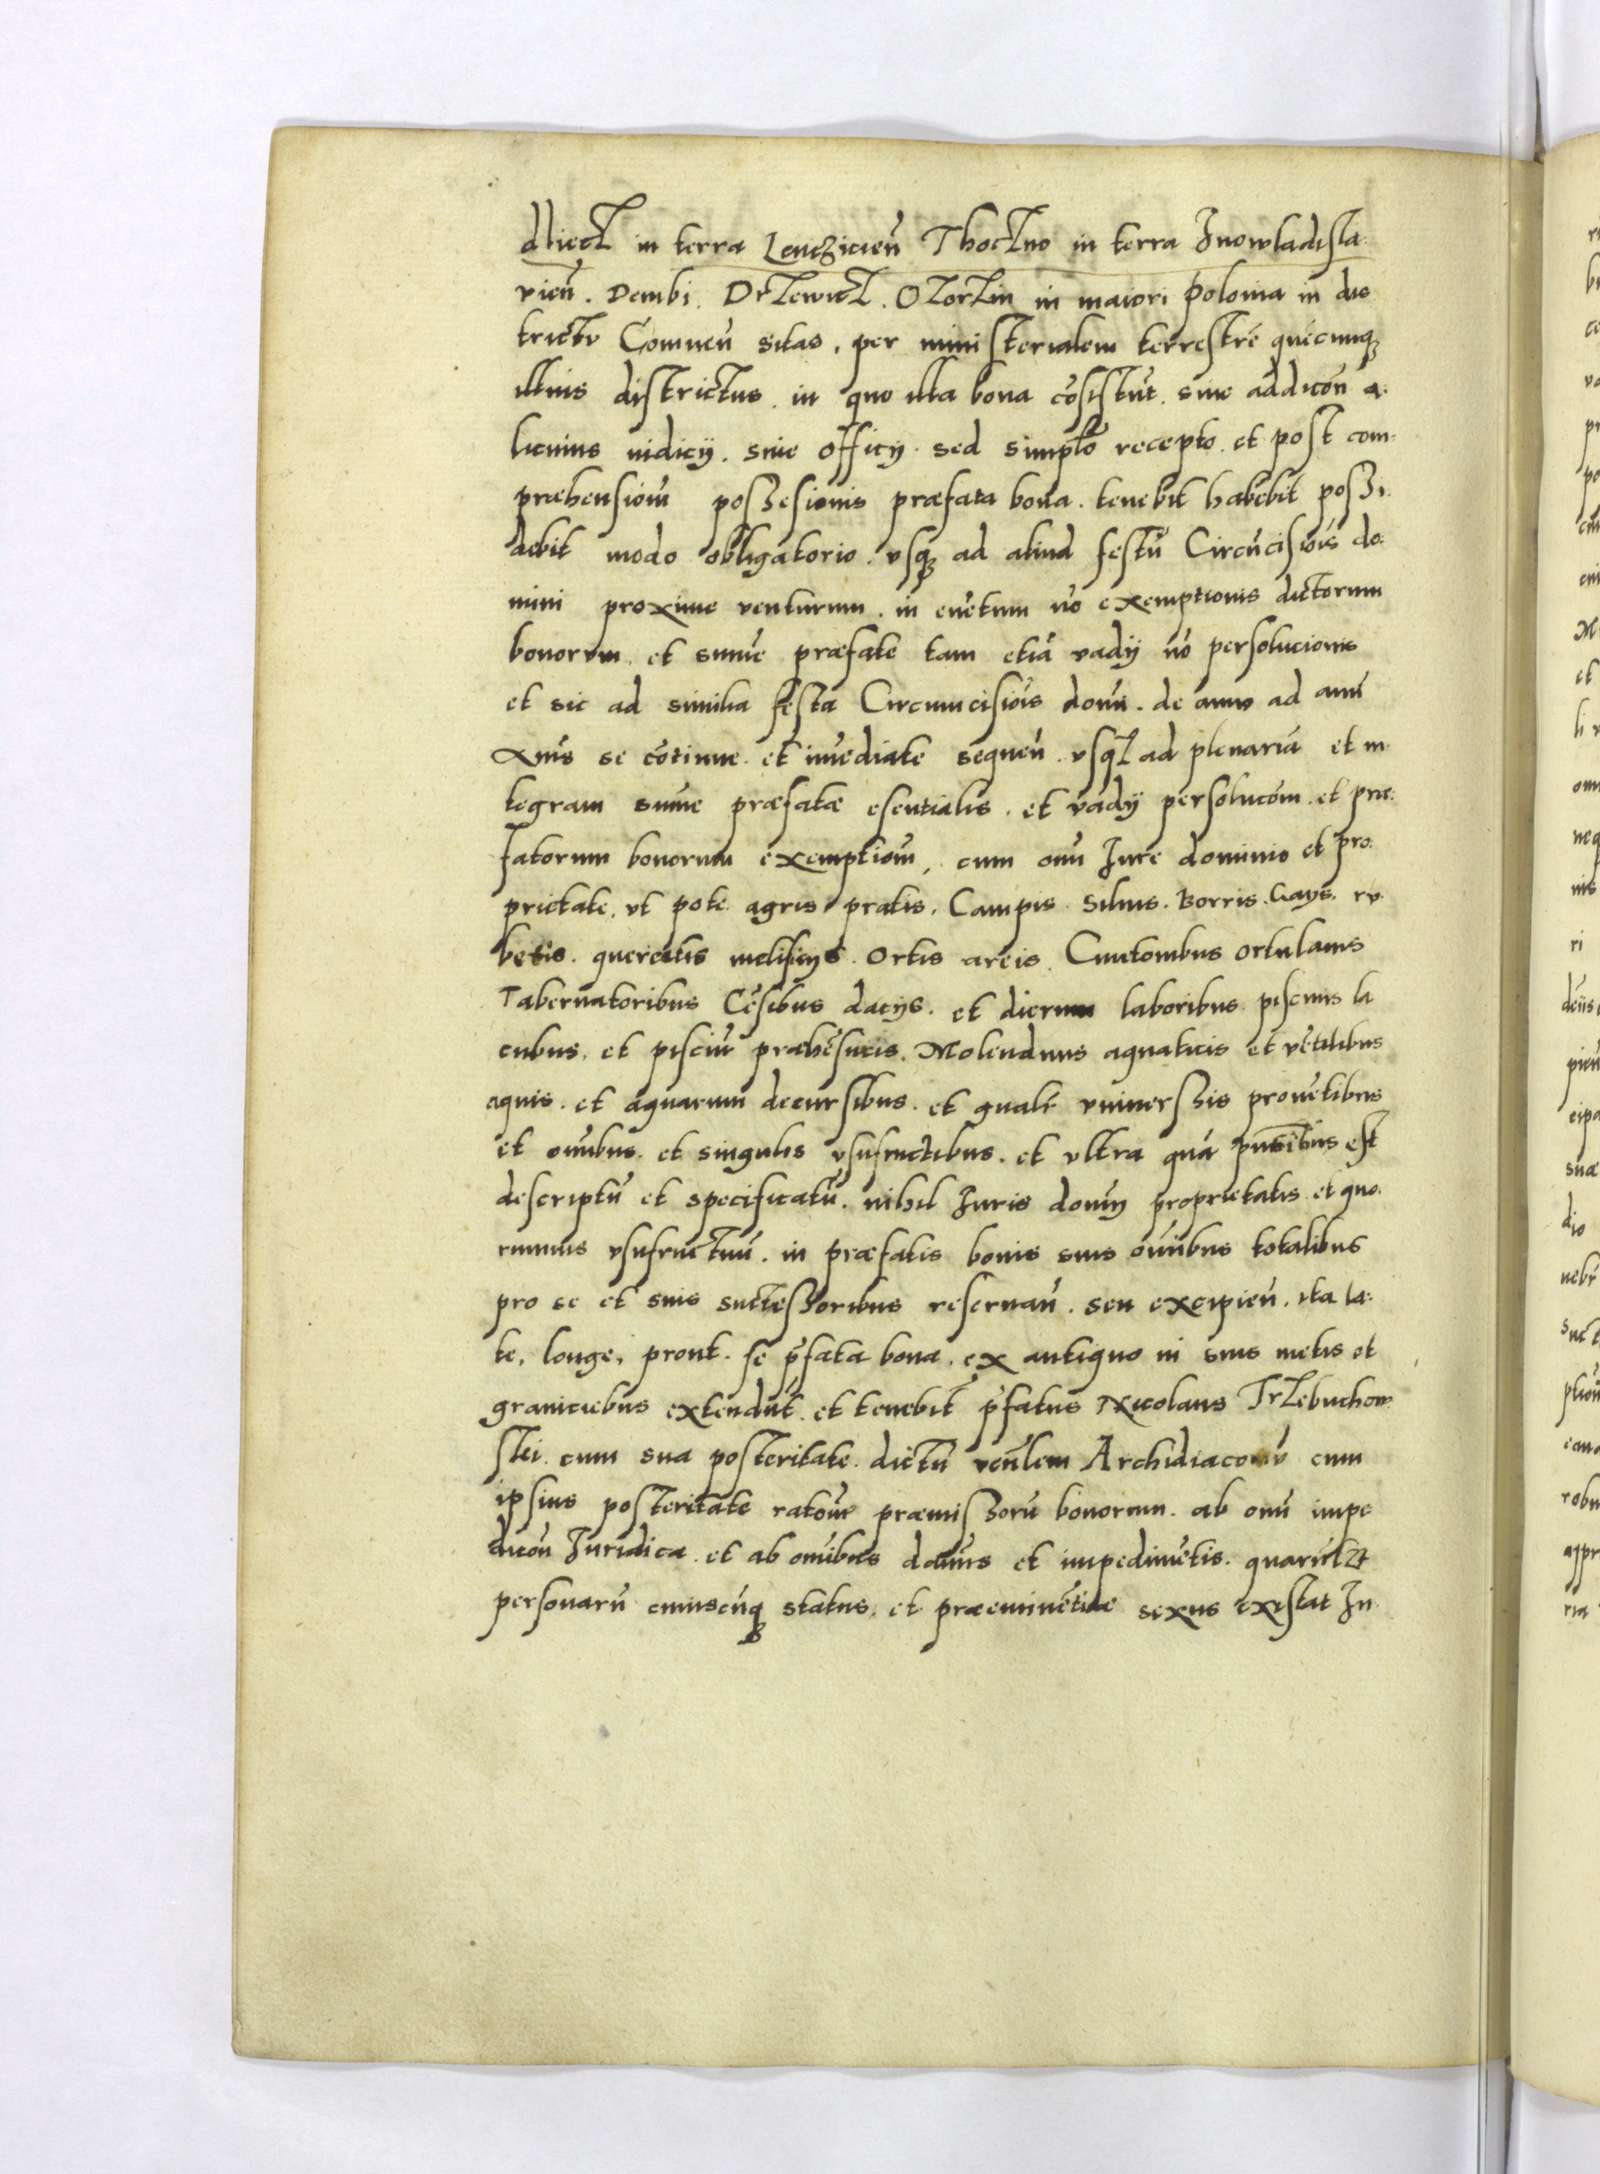 dlieck in terra Lencziciēn Thockno in terra Inowladisla-
viēn. Dembi. Drzewick. Olorzin in maiori Polonia in dis
trictu Conineñ sitas, per ministerialem terrestrē quēcunq
illius districtus in quo illa bona cōsistūt. sine addicōn a-
licuius iudicÿ. sine officÿ. sed simpłō recepto. et post com-
præhensiom̄ poszesionis præfata bona. tenebit habebit poszi-
debit modo obligatorio. usq ad aliud festū Circūcisiōis do-
mini proxime venturum. in evētum nō exemptionis dictorum
bonorum. et sum̄e præfate tam etiā vadÿ nō persolucionis
et sic ad similia festa Circumcisiōis dom̄. de anno ad annū
se cōtinue et im̄ediate sequeñ. usqz ad plenariā et in-
tegram sum̄e præfatæ esentialis. et vadÿ persolucōm. et præ-
fatorum bonorum exemptiom̄, cum om̄i Iure dominio et pro-
prietate, ut pote agris pratis, Campis. Siluis. Borris. Gays. ru-
betis. quercetis mellificÿs. Ortis areis. Cmetonibus ortulanis
Tabernatoribus Cēsibus dacÿs. et dierum laboribus piscinis la
cubus, et pisciū præhēsuris. Molendinis aquaticis et vētilibus
aquis. et aquarum decursibus. et gn̄ali universzis provētibus
et om̄ibus. et singulis usufructibus. et ultra quā pn̄tibus est
descriptū et specificatū. nihil Iuris dom̄ÿ proprietatis et quo-
rumuis usufructuū. in præfatis bonis suis om̄ibus totalibus
pro se et suis succeszoribus reservañ. seu excipieñ. ita la-
te, longe, prout. se p̄fata bona. ex antiquo in suis metis et
graniciebus extendūt. et tenebit p̄fatus Nicolaus Trzebuchow-
ski. cum sua posteritate. dictū ven̄lem Archidiaconū cum
ipsius posteritate ratom̄e præmiszorū bonorum. ab om̄i impe
dicōn Iuridica. et ab om̄ibus dam̄is et impedimētis. quarūlzt
personarū cuiuscūq status, et præeminētiae sexus existat In-